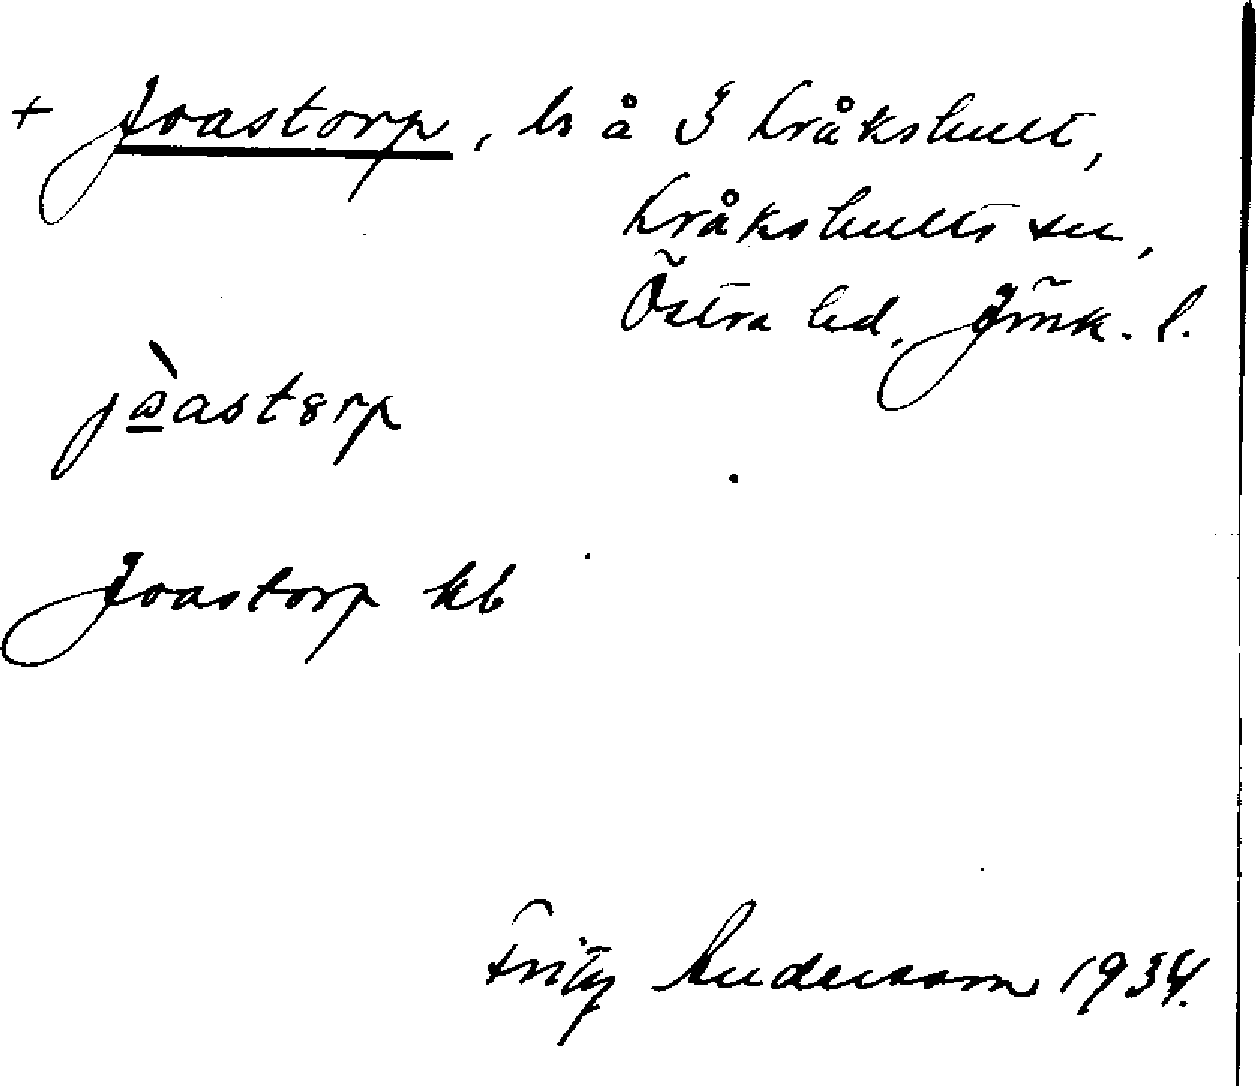 + Joastorp, ls å 3 Kråkshult,
Kråkshults sn,
Östra hd, Jönk. l.
jòastorp
Joastorp kb
Fritz Andersson 1934.